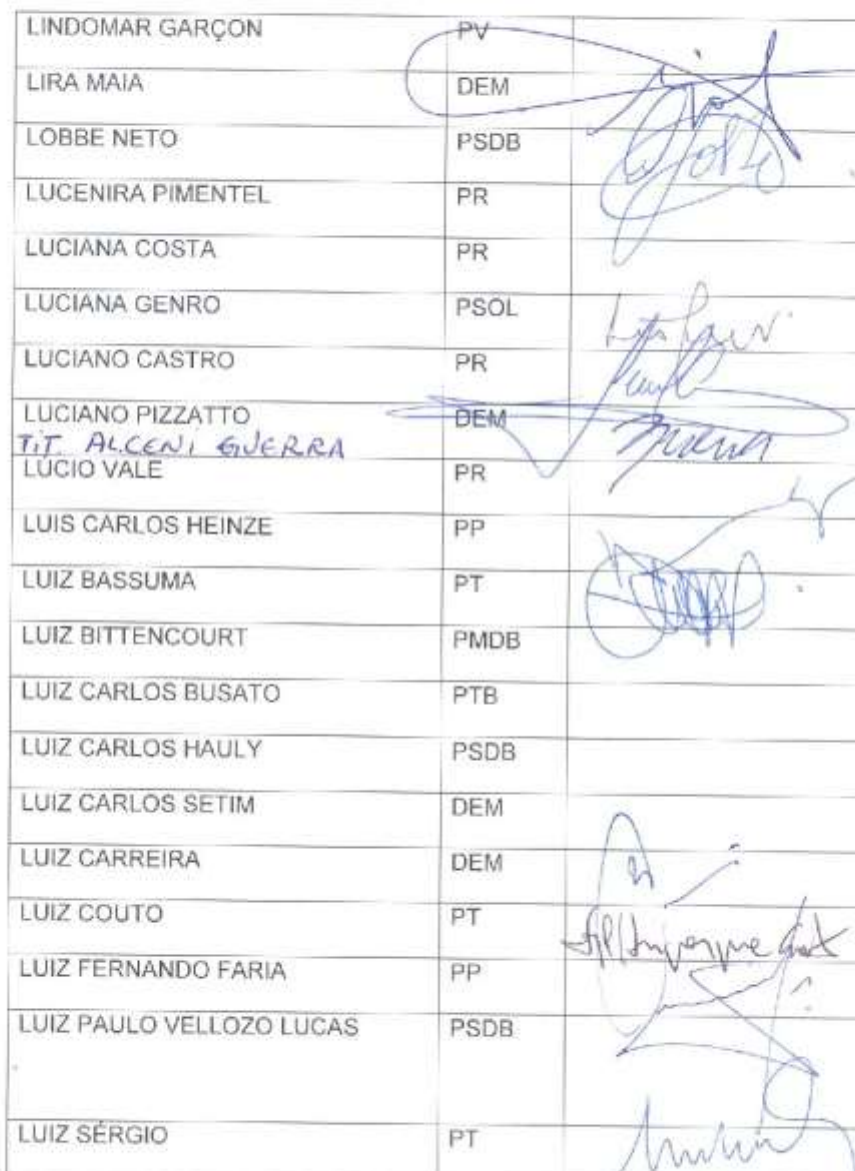 LINDOMAR GARÇON PV
LIRA MAIA DEM
LOBBE NETO PSDB
LUCENIRA PIMENTEL PR
LUCIANA COSTA PR
LUCIANA GENRO PSOL
LUCIANO CASTRO PR
LUCIANO PIZZATTO DEM
TIT. ALCENI GUERRA
LÚCIO VALE PR
LUIS CARLOS HEINZE PP
LUIZ BASSUMA PT
LUIZ BITTENCOURT PMDB
LUIZ CARLOS BUSATO PTB
LUIZ CARLOS HAULY PSDB
LUIZ CARLOS SETIM DEM
LUIZ CARREIRA DEM
LUIZ COUTO PT
LUIZ FERNANDO FARIA PP
LUIZ PAULO VELLOZO LUCAS PSDB
LUIZ SÉRGIO PT